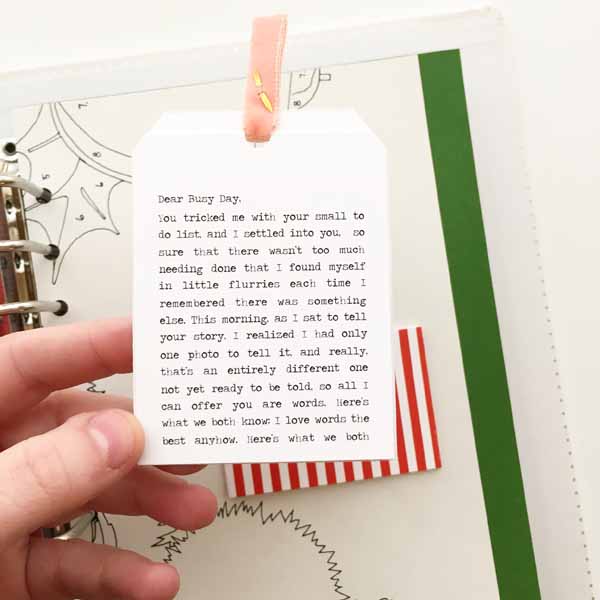 7.
8
8
Dear Busy Day,
You tricked me with your small to
do list, and I settled into you, so
sure that there wasn't too much
needing done that I found myself
in little flurries each time I
remembered there was something
else. This morning, as I sat to tell
your story, I realized I had only
one photo to tell it, and really,
that's an entirely different one
not yet ready to be told, so all I
can offer you are words. Here's
what we both know: I love words the
best anyhow. Here's what we both